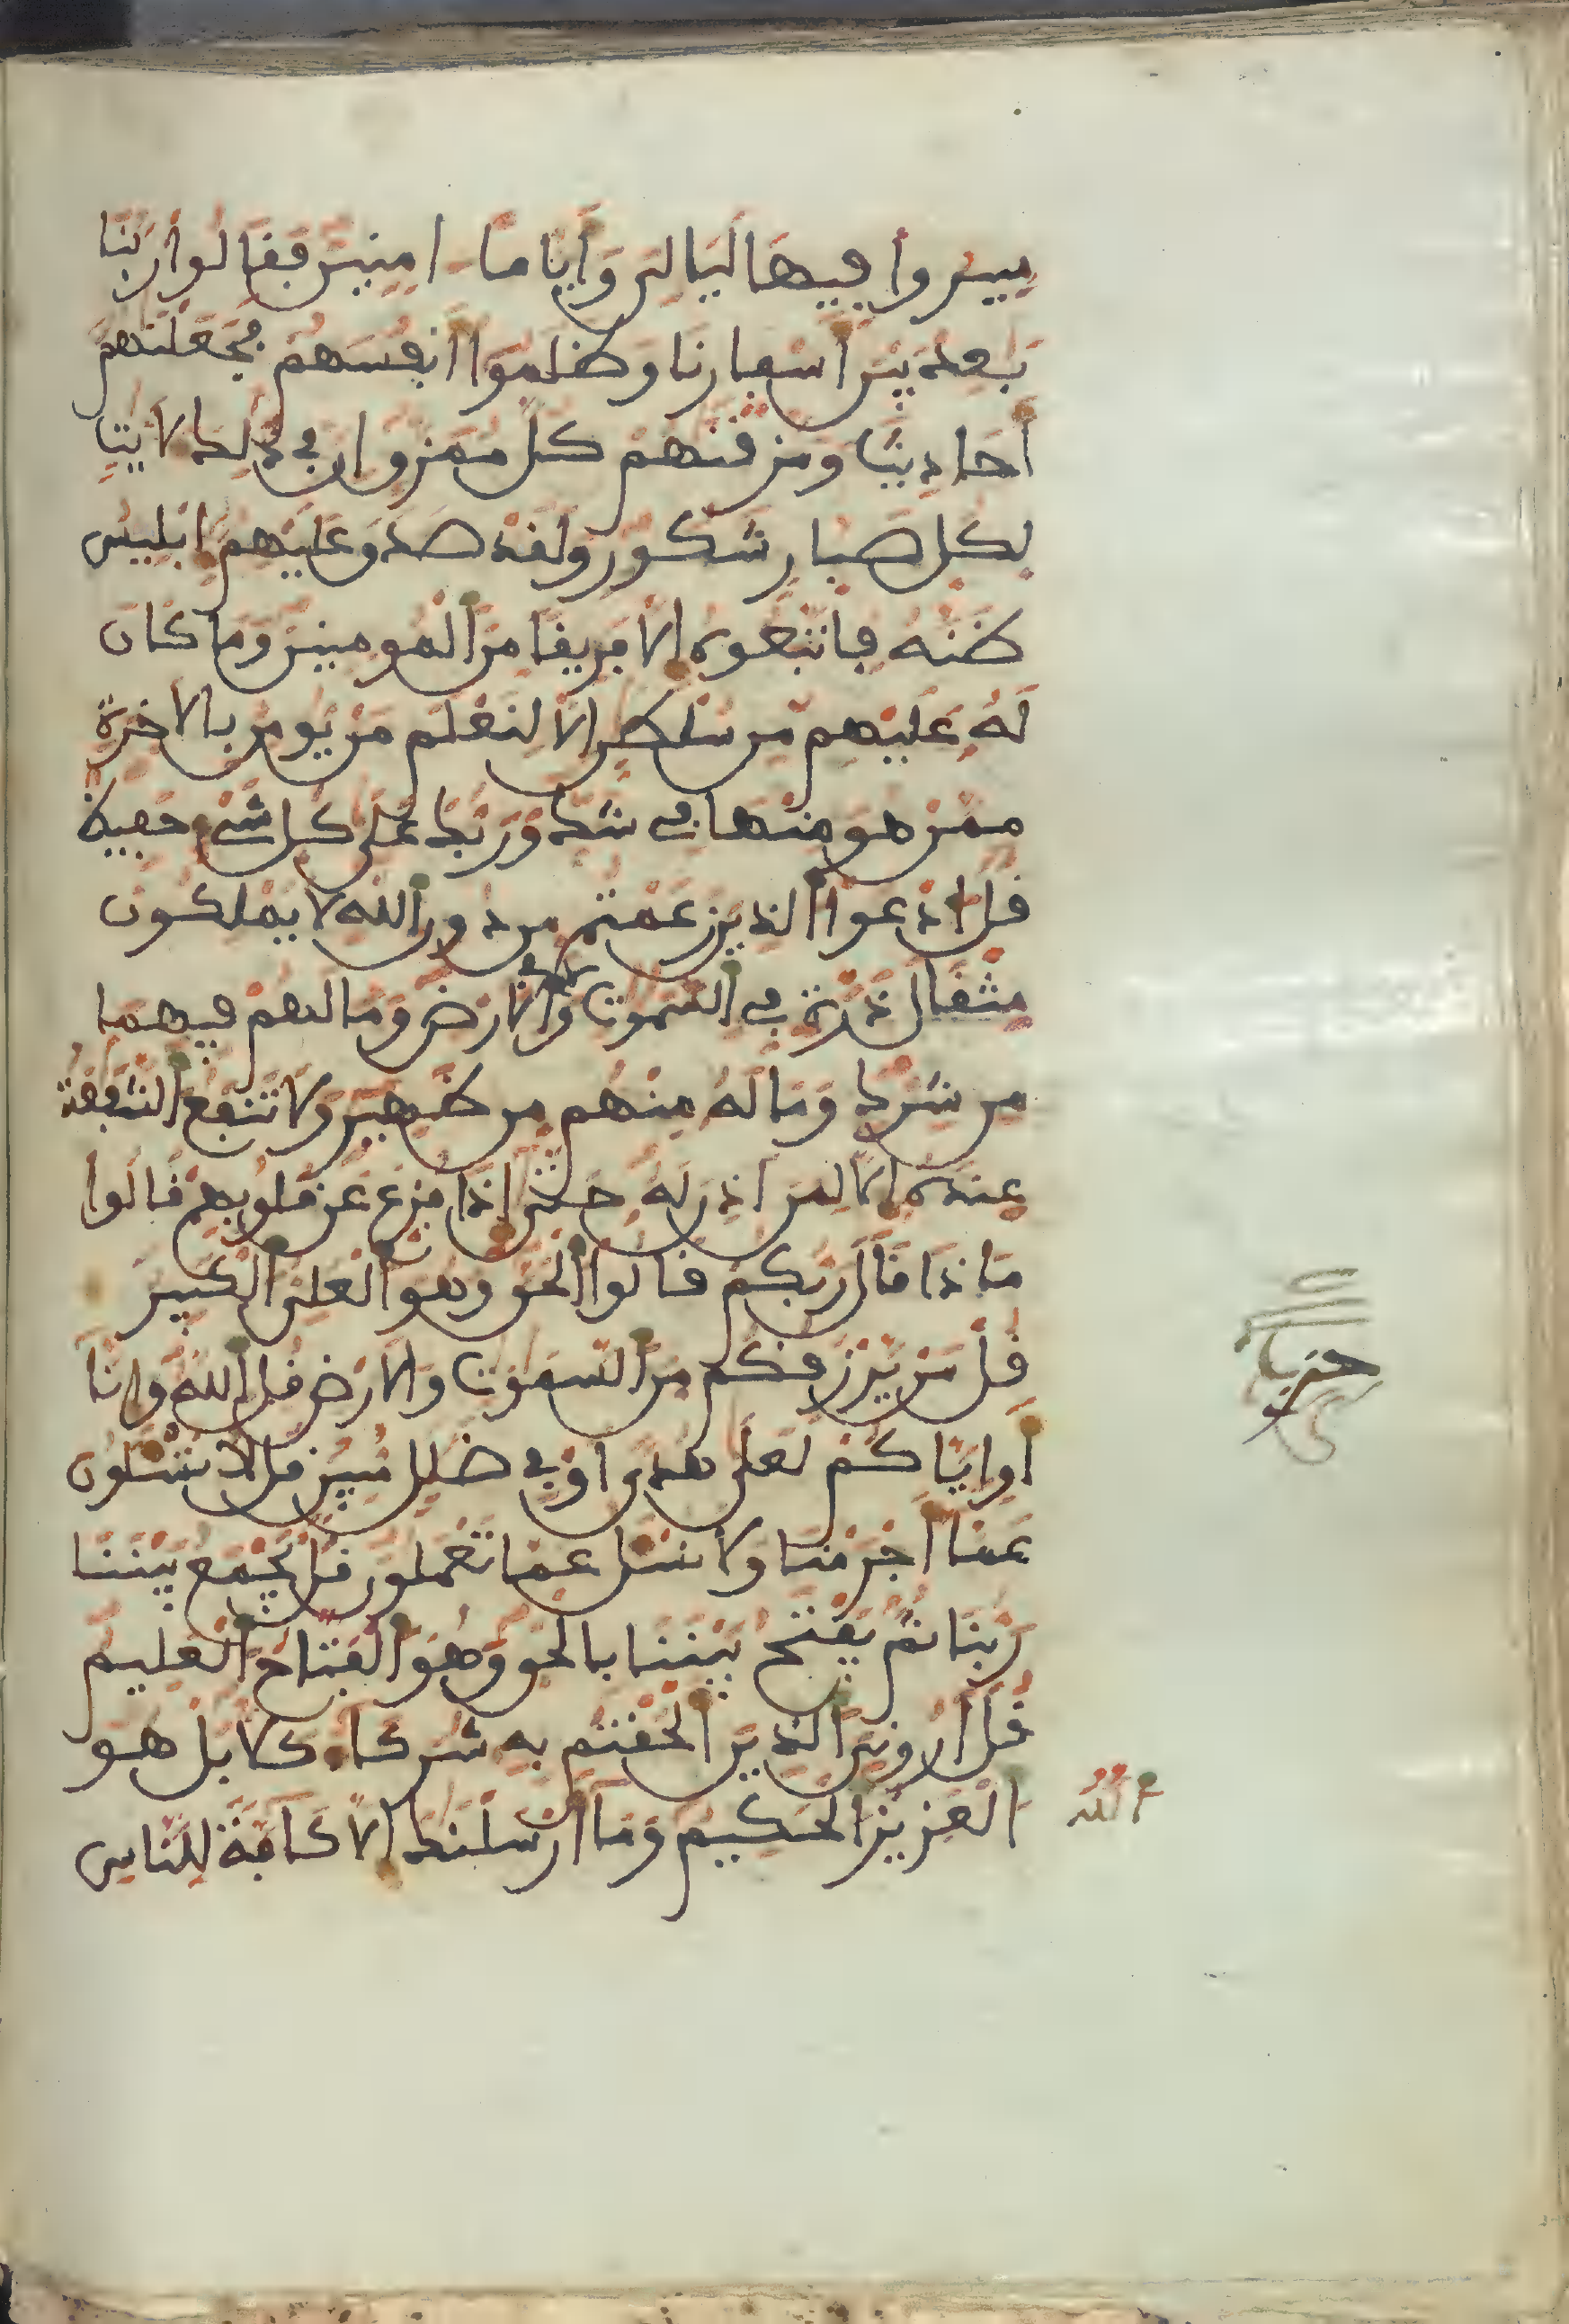 سيروا فيها ليالي وأياما امنين فقالوا ربنا
بعد بين أسفارنا وظلموا أنفسهم فجعلنهم
أحاديث ومزقنهم كل ممزق ان في ذلك لايت
لكل صبار شكور ولقد صدق عليهم ابليس
ظنه فاتبعوه الا فريقا من المومنين وما كان
له عليهم من سلطن الا لنعلم من يومن بالاخرة
ممن هو منها في شك وربك على كل شيء حفيظ
قل ادعوا الذين زعمتم من دون الله لا يملكون
مثقال ذرة في السموت ولا في الارض وما لهم فيهما
من شرك وما له منهم من ظهير ولا تنفع الشفعة
عنده الا لمن اذن له حتى اذا فزع عن قلوبهم قالوا
ماذا قال ربكم قالوا الحق وهو العلي الكبير
قل من يرزقكم من السموت والارض قل الله وانا
أو اياكم لعلى هدى او في ضلل مبين قل لا تسلون
عما أجرمنا ولا نسل عما تعملون قل يجمع بيننا
ربنا ثم يفتح بيننا بالحق وهو الفتاح العليم
قل أروني الذين ألحقتم به شركاء كلا بل هو
الله
العزيز الحكيم وما أرسلنك الا كافة للناس
حزب